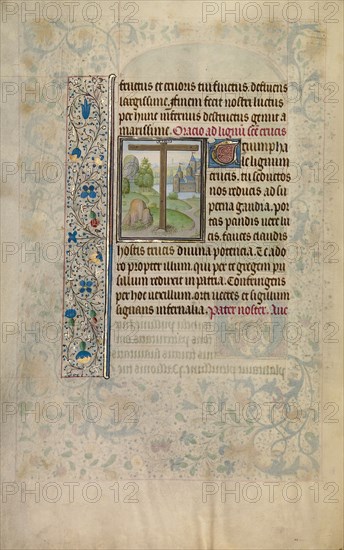 fructus et cruoris tui fluctus. defluens
largissime. finem fecit nostri luctus
per hunc inferius destructus genuit a
marissime. Oratio ad lignum scte crucis
Triumpha
le lignum
crucis. tu seductos
nos reducas ad su
perna gaudia. por
tas pandis vere lu
cis. faues claudis
hostis crucis diuina potencia. Te ado
ro propter illum. qui per te gregem pu
sillum reduxit in patria. Confringens
per hoc vexillum. oti veteris et sigillum
signans infernalia. Pater noster. Aue
PHOTO 12